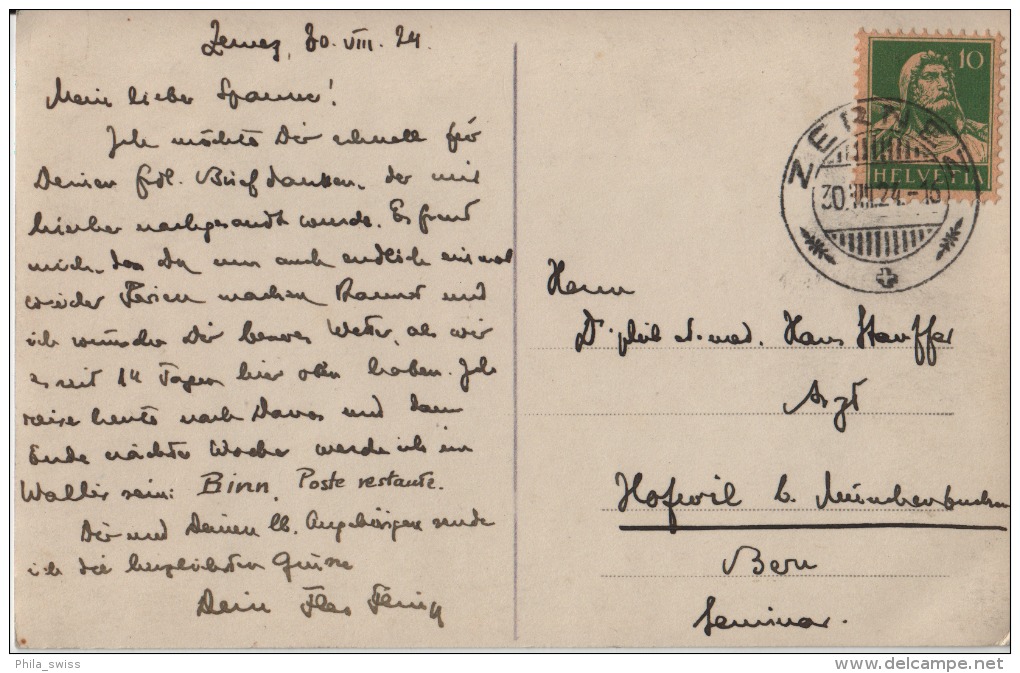 Zernez, 30. VIII. 24.
Mein lieber Spanner!
Ich möchte Dir schnell für
Deinen frdl. Brief danken, der mir
hierher nachgesandt wurde. Es freut
mich, dass Du nun auch endlich einmal
wieder Ferien machen kannst und
ich wünsche Dir besseres Wetter, als wir
es seit 14 Tagen hier oben haben. Ich
reise heute nach Davos und dann
Ende nächster Woche werde ich im
Wallis sein: Binn, Poste restante.
Dir und Deinen lb. Angehörigen sende
ich die herzlichsten Grüsse
Dein
10
HELVETIA
ZERNEZ
30.VIII.24.-16
Herrn
Dr phil et med. Hans Stauffer
Arzt
Hofwil b. Münchenbuchsee
Bern
Seminar.
Phila_swiss
http://www.delcampe.net